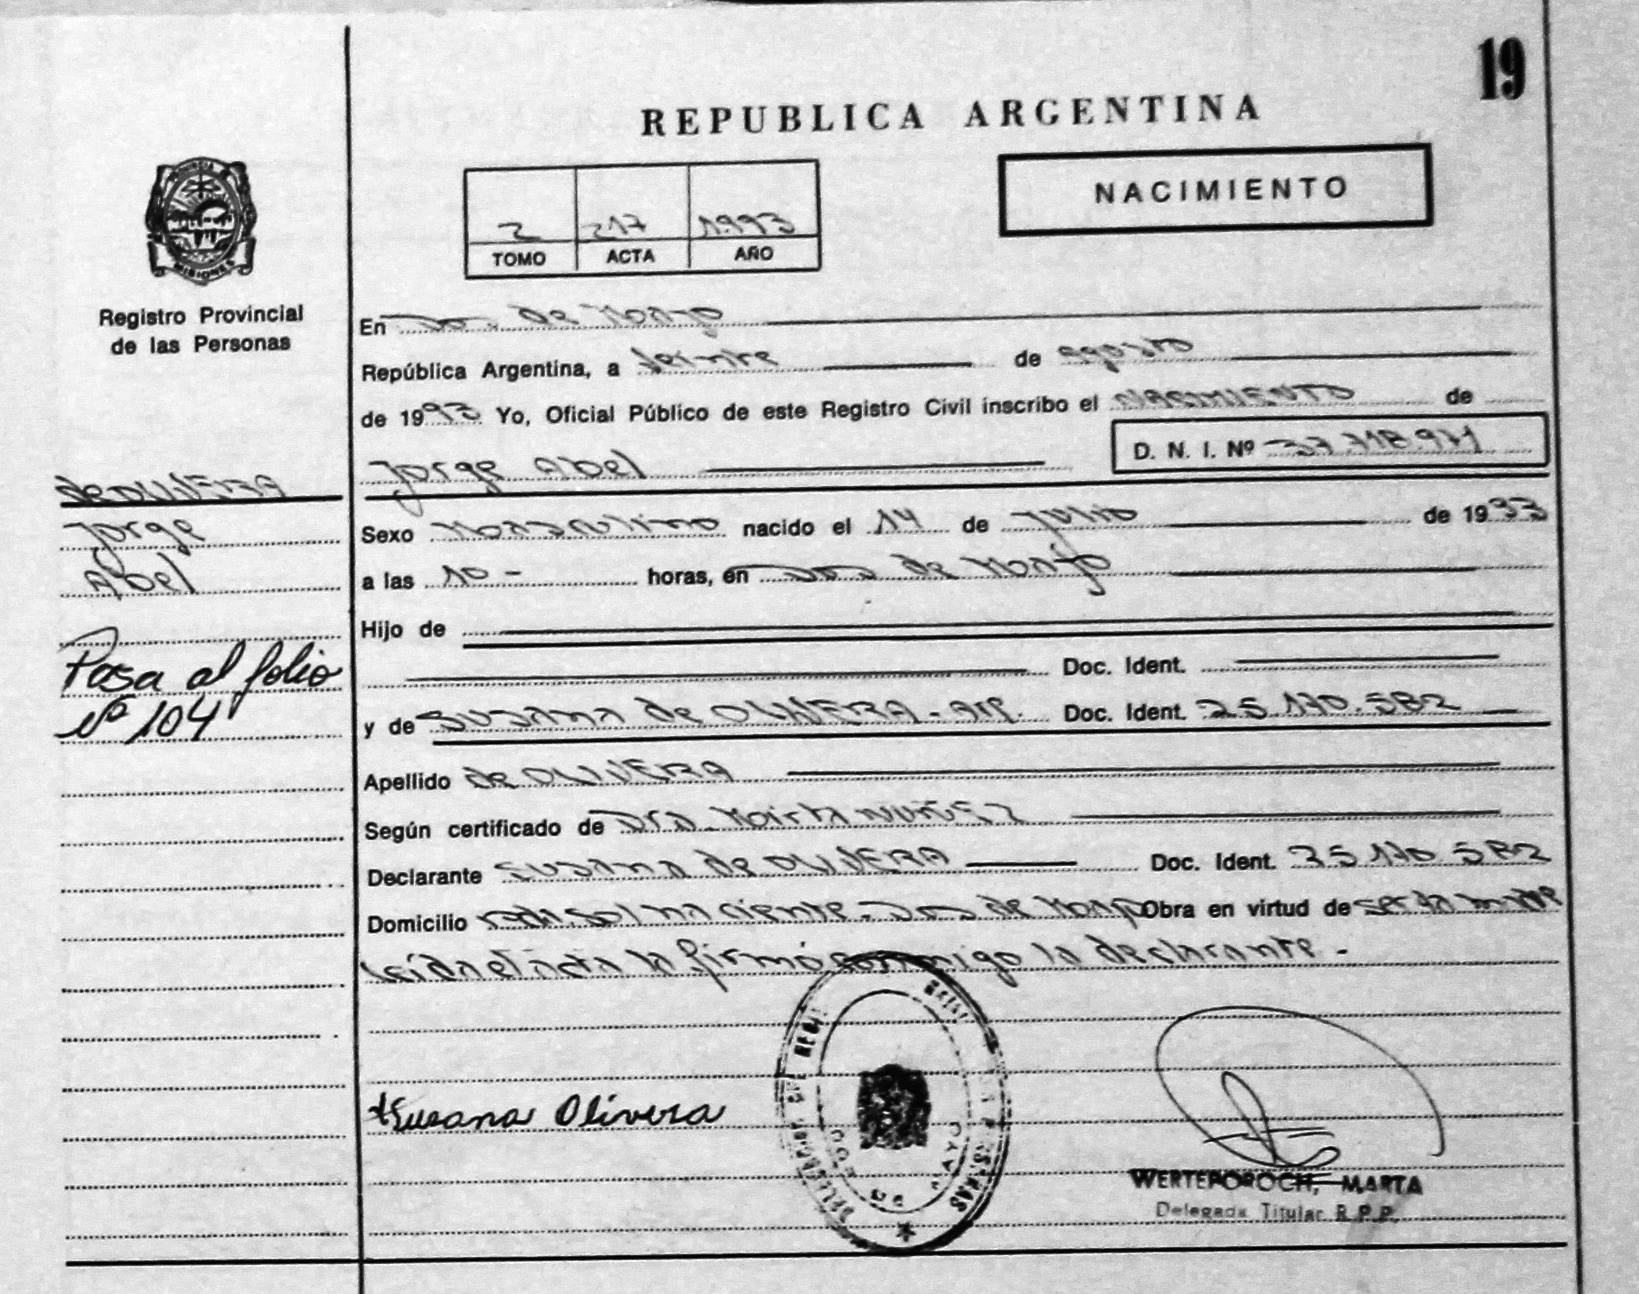 19
REPUBLICA ARGENTINA
NACIMIENTO
2 217 1993
TOMO ACTA AÑO
PROVINCIA DE MISIONES
Registro Provincial
de las Personas
En Dos de Mayo
República Argentina, a de agosto
de 1993 Yo, Oficial Público de este Registro Civil inscribo el NACIMIENTO de
Jorge Abel D. N. I. Nº 37.718.971
de OLIVERA
Jorge
Abel
Pasa al folio
Nº 104
Sexo Masculino nacido el 14 de Julio de 1993
a las 10- horas, en Dos de Mayo
Hijo de
Doc. Ident.
y de SUSANA de OLIVERA - Arg. Doc. Ident. 25.170.582
Apellido de OLIVERA
Según certificado de Dra. NUÑEZ
Declarante SUSANA de OLIVERA Doc. Ident. 25.170.582
Domicilio sol naciente - Dos de Mayo Obra en virtud de ser la madre
leída el acta la firmó conmigo la declarante.-
Susana Olivera
DOS DE MAYO
WERTEPOROCH, MARTA
Delegada Titular R.P.P.